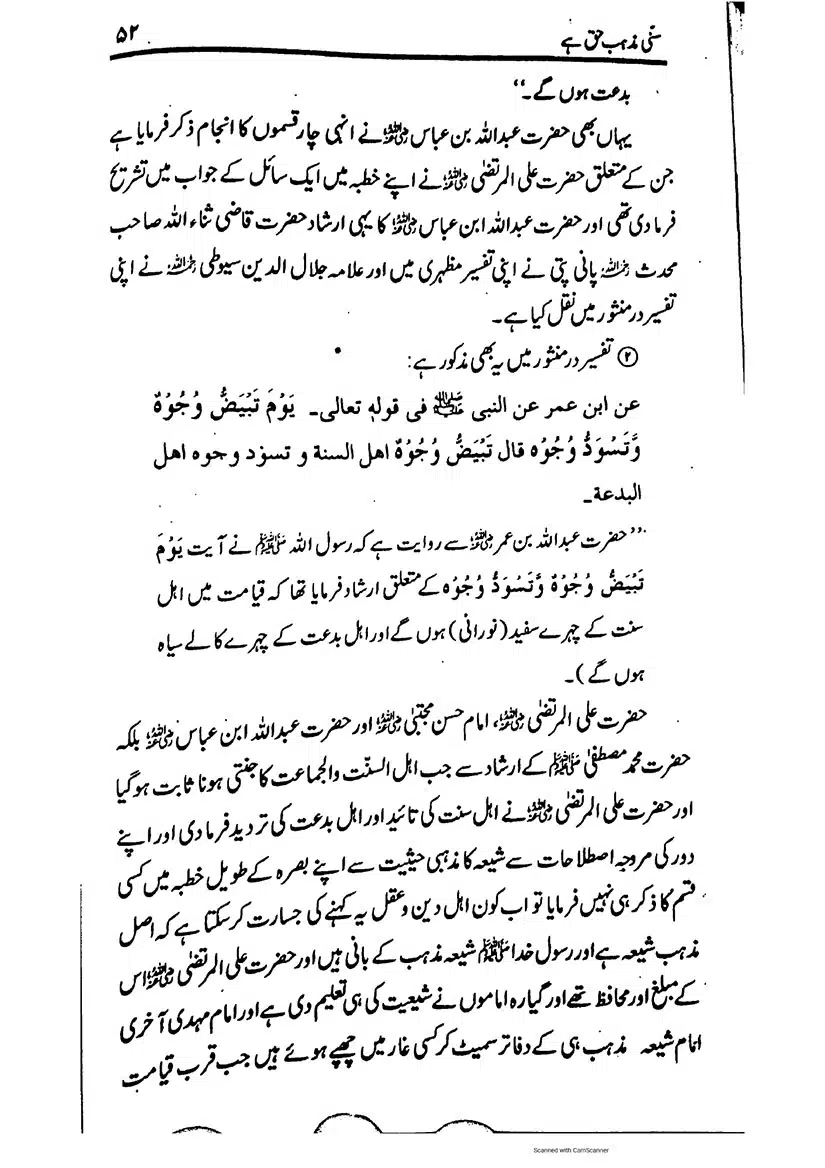 سنّی مذہب حق ہے ۵۲
بدعت ہوں گے۔‘‘
یہاں بھی حضرت عبداللہ بن عباس رضی اللہ عنہ نے انہی چار قسموں کا انجام ذکر فرمایا ہے
جن کے متعلق حضرت علی المرتضیٰ رضی اللہ عنہ نے اپنے خطبہ میں ایک سائل کے جواب میں تشریح
فرما دی تھی اور حضرت عبداللہ ابن عباس رضی اللہ عنہ کا یہی ارشاد حضرت قاضی ثناء اللہ صاحب
محدث رحمہ اللہ پانی پتی نے اپنی تفسیر مظہری میں اور علامہ جلال الدین سیوطی رحمہ اللہ نے اپنی
تفسیر در منثور میں نقل کیا ہے۔
② تفسیر در منثور میں یہ بھی مذکور ہے:
عن ابن عمر عن النبی ﷺ فی قولہٖ تعالی۔ یَوْمَ تَبْیَضُّ وُجُوْہٌ
وَّتَسْوَدُّ وُجُوْہ قال تَبْیَضُّ وُجُوْہٌ اھل السنة و تسوٓد وجوہ اھل
البدعة۔
’’حضرت عبداللہ بن عمر رضی اللہ عنہ سے روایت ہے کہ رسول اللہ ﷺ نے آیت یَوْمَ
تَبْیَضُّ وُجُوْہٌ وَّتَسْوَدُّ وُجُوْہ کے متعلق ارشاد فرمایا تھا کہ قیامت میں اہل
سنت کے چہرے سفید (نورانی) ہوں گے اور اہل بدعت کے چہرے کالے سیاہ
ہوں گے)۔
حضرت علی المرتضیٰ رضی اللہ عنہ، امام حسن مجتبیٰ رضی اللہ عنہ اور حضرت عبداللہ ابن عباس رضی اللہ عنہ بلکہ
حضرت محمد مصطفیٰ ﷺ کے ارشاد سے جب اہل السنّت والجماعت کا جنتی ہونا ثابت ہو گیا
اور حضرت علی المرتضیٰ رضی اللہ عنہ نے اہل سنت کی تائید اور اہل بدعت کی تردید فرما دی اور اپنے
دور کی مروجہ اصطلاحات سے شیعہ کا مذہبی حیثیت سے اپنے بصرہ کے طویل خطبہ میں کسی
قسم کا ذکر ہی نہیں فرمایا تو اب کون اہل دین و عقل یہ کہنے کی جسارت کر سکتا ہے کہ اصل
مذہب شیعہ ہے اور رسول خدا ﷺ شیعہ مذہب کے بانی ہیں اور حضرت علی المرتضیٰ رضی اللہ عنہ اس
کے مبلغ اور محافظ تھے اور گیارہ اماموں نے شیعیت کی ہی تعلیم دی ہے اور امام مہدی آخری
امام شیعہ مذہب ہی کے دفاتر سمیٹ کر کسی غار میں چھپے ہوئے ہیں جب قرب قیامت
Scanned with CamScanner